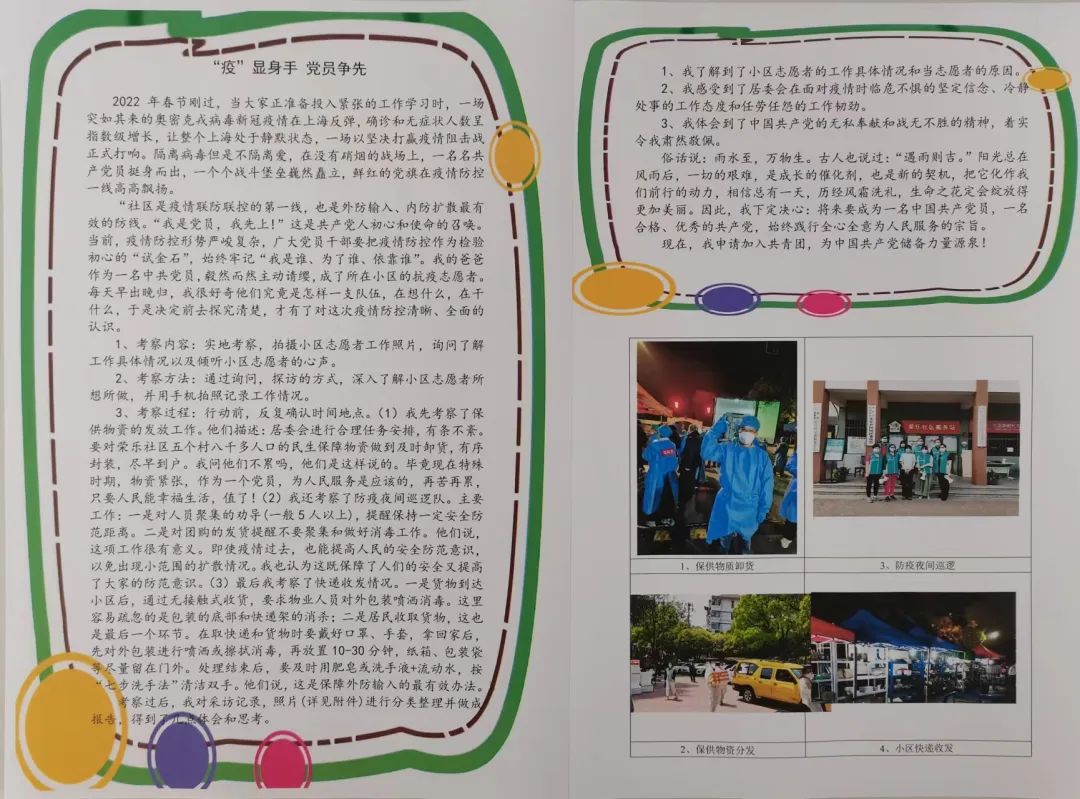 “疫”显身手 党员争先
2022 年春节刚过，当大家正准备投入紧张的工作学习时，一场
突如其来的奥密克戎病毒新冠疫情在上海反弹，确诊和无症状人数呈
指数级增长，让整个上海处于静默状态，一场以坚决打赢疫情阻击战
正式打响。隔离病毒但是不隔离爱，在没有硝烟的战场上，一名名共
产党员挺身而出，一个个战斗堡垒巍然矗立，鲜红的党旗在疫情防控
一线高高飘扬。
“社区是疫情联防联控的第一线，也是外防输入、内防扩散最有
效的防线。“我是党员，我先上！”这是共产党人初心和使命的召唤。
当前，疫情防控形势严峻复杂，广大党员干部要把疫情防控作为检验
初心的“试金石”，始终牢记“我是谁、为了谁、依靠谁”。我的爸爸
作为一名中共党员，毅然而然主动请缨，成了所在小区的抗疫志愿者。
每天早出晚归，我很好奇他们究竟是怎样一支队伍，在想什么，在干
什么，于是决定前去探究清楚，才有了对这次疫情防控清晰、全面的
认识。
1、考察内容：实地考察，拍摄小区志愿者工作照片，询问了解
工作具体情况以及倾听小区志愿者的心声。
2、考察方法：通过询问，探访的方式，深入了解小区志愿者所
想所做，并用手机拍照记录工作情况。
3、考察过程：行动前，反复确认时间地点。（1）我先考察了保
供物资的发放工作。他们描述：居委会进行合理任务安排，有条不紊。
要对荣乐社区五个村八千多人口的民生保障物资做到及时卸货，有序
封装，尽早到户。我问他们不累吗，他们是这样说的。毕竟现在特殊
时期，物资紧张，作为一个党员，为人民服务是应该的，再苦再累，
只要人民能幸福生活，值了！（2）我还考察了防疫夜间巡逻队。主要
工作：一是对人员聚集的劝导(一般 5 人以上)，提醒保持一定安全防
范距离。二是对团购的发货提醒不要聚集和做好消毒工作。他们说，
这项工作很有意义。即使疫情过去，也能提高人民的安全防范意识，
以免出现小范围的扩散情况。我也认为这既保障了人们的安全又提高
了大家的防范意识。（3）最后我考察了快递收发情况。一是货物到达
小区后，通过无接触式收货，要求物业人员对外包装喷洒消毒。这里
容易疏忽的是包装的底部和快递架的消杀；二是居民收取货物，这也
是最后一个环节。在取快递和货物时要戴好口罩、手套，拿回家后，
先对外包装进行喷洒或擦拭消毒，再放置 10-30 分钟，纸箱、包装袋
等尽量留在门外。处理结束后，要及时用肥皂或洗手液+流动水，按
“七步洗手法”清洁双手。他们说，这是保障外防输入的最有效办法。
考察过后，我对采访记录，照片(详见附件)进行分类整理并做成
报告，得到了几点体会和思考。
1、我了解到了小区志愿者的工作具体情况和当志愿者的原因。
2、我感受到了居委会在面对疫情时临危不惧的坚定信念、冷静
处事的工作态度和任劳任怨的工作韧劲。
3、我体会到了中国共产党的无私奉献和战无不胜的精神，着实
令我肃然敬佩。
俗话说：雨水至，万物生。古人也说过：“遇雨则吉。”阳光总在
风雨后，一切的艰难，是成长的催化剂，也是新的契机，把它化作我
们前行的动力，相信总有一天，历经风霜洗礼，生命之花定会绽放得
更加美丽。因此，我下定决心：将来要成为一名中国共产党员，一名
合格、优秀的共产党，始终践行全心全意为人民服务的宗旨。
现在，我申请加入共青团，为中国共产党储备力量源泉！
荣乐社区服务站
1、保供物质卸货
3、防疫夜间巡逻
2、保供物资分发
4、小区快递收发